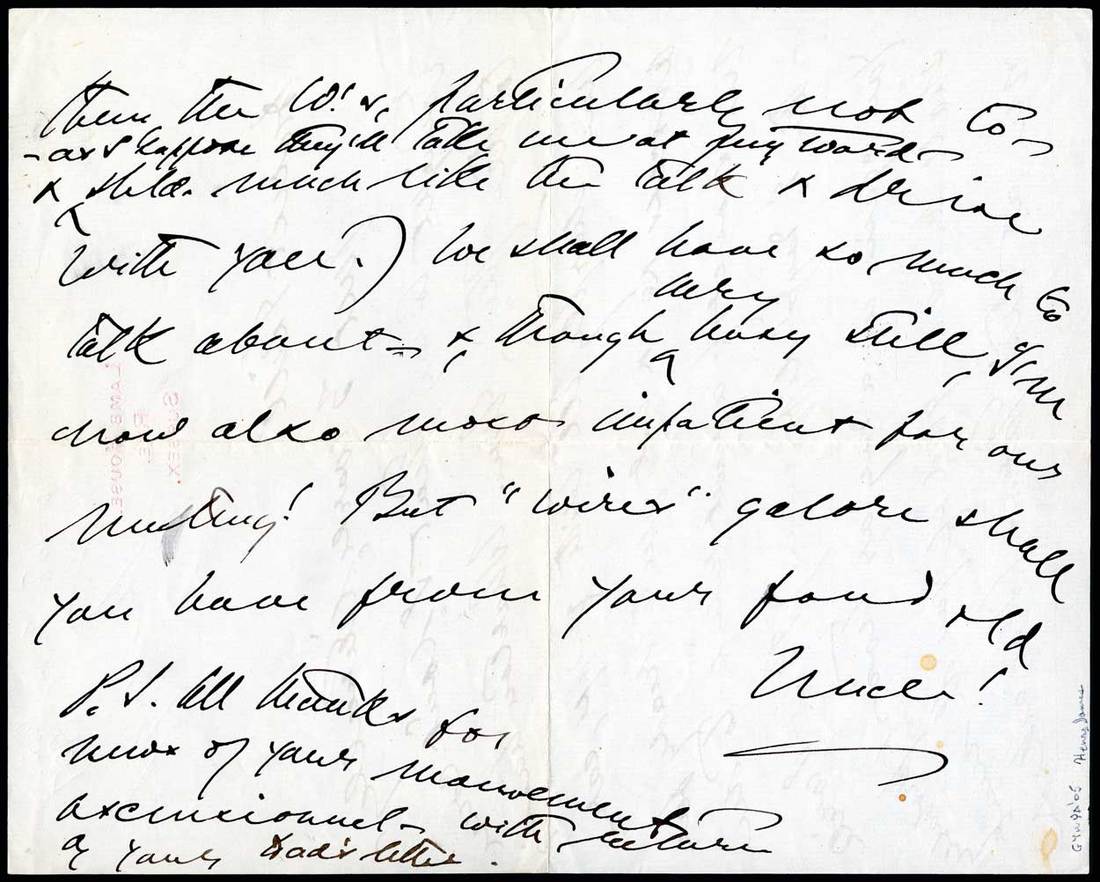 them the W's, particularly not to
- as I suppose they'll talk me at
& shld. much like the talk & drive
with you.) We shall have so much to
talk about - & though very busy still, I'm
now also most impatient for our
meeting! But "wires" galore shall
you have from your fond old
Uncle!
P.S. All thanks for
news of your movements
excursional - with return
of your Dad's letter.
LAMB HOUSE,
RYE,
SUSSEX.
Henry James